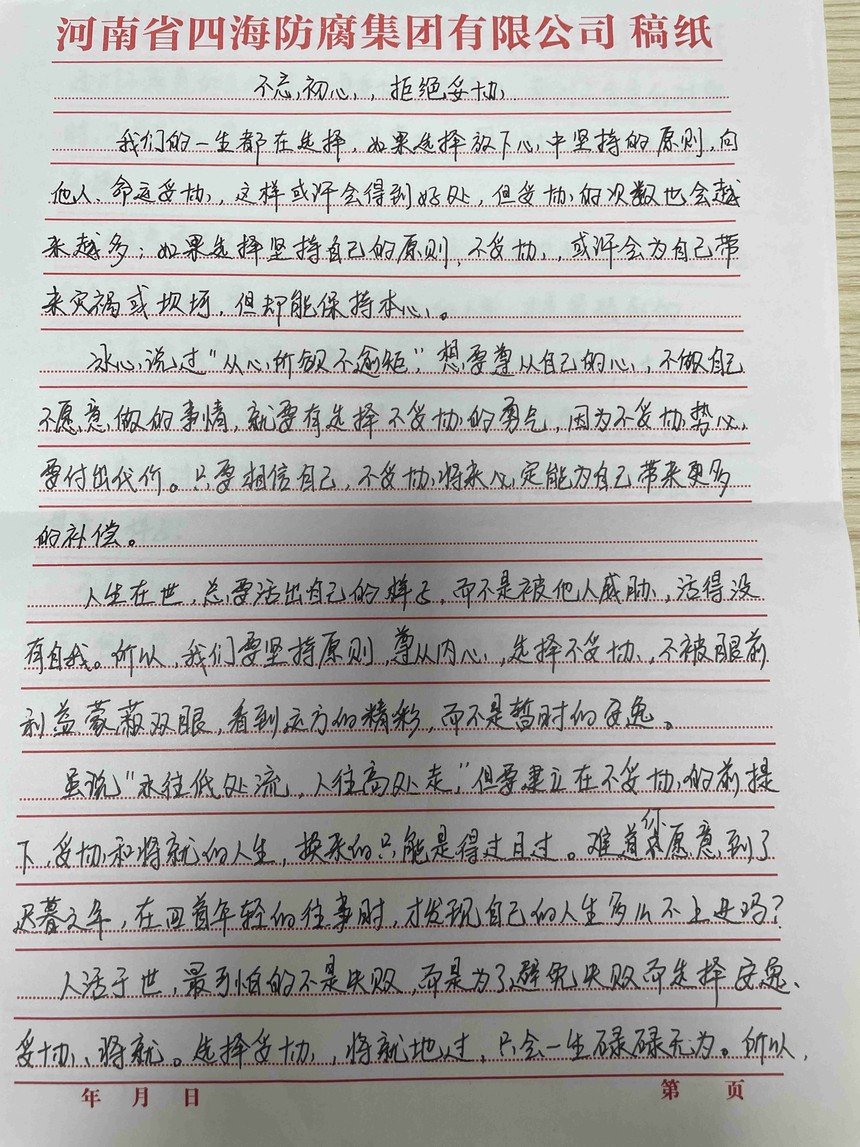 河南省四海防腐集团有限公司 稿纸
不忘初心，拒绝妥协
我们的一生都在选择，如果选择放下心中坚持的原则，向
他人、命运妥协，这样或许会得到好处，但妥协的次数也会越
来越多；如果选择坚持自己的原则，不妥协，或许会为自己带
来灾祸或坎坷，但却能保持本心。
冰心说过“从心所欲不逾矩”，想要尊从自己的心，不做自己
不愿意做的事情，就要有选择不妥协的勇气，因为不妥协势必
要付出代价。只要相信自己，不妥协将来必定能为自己带来更多
的补偿。
人生在世，总要活出自己的样子，而不是被他人威胁，活得没
有自我。所以，我们要坚持原则，尊从内心，选择不妥协，不被眼前
利益蒙蔽双眼，看到远方的精彩，而不是暂时的安逸。
虽说“水往低处流，人往高处走”，但要建立在不妥协的前提
下，妥协和将就的人生，换来的只能是得过且过。难道你愿意到了
迟暮之年，在回首年轻的往事时，才发现自己的人生多么不上进吗？
人活于世，最可怕的不是失败，而是为了避免失败而选择安逸、
妥协、将就。选择妥协，将就地过，只会一生碌碌无为。所以，
年 月 日 第 页